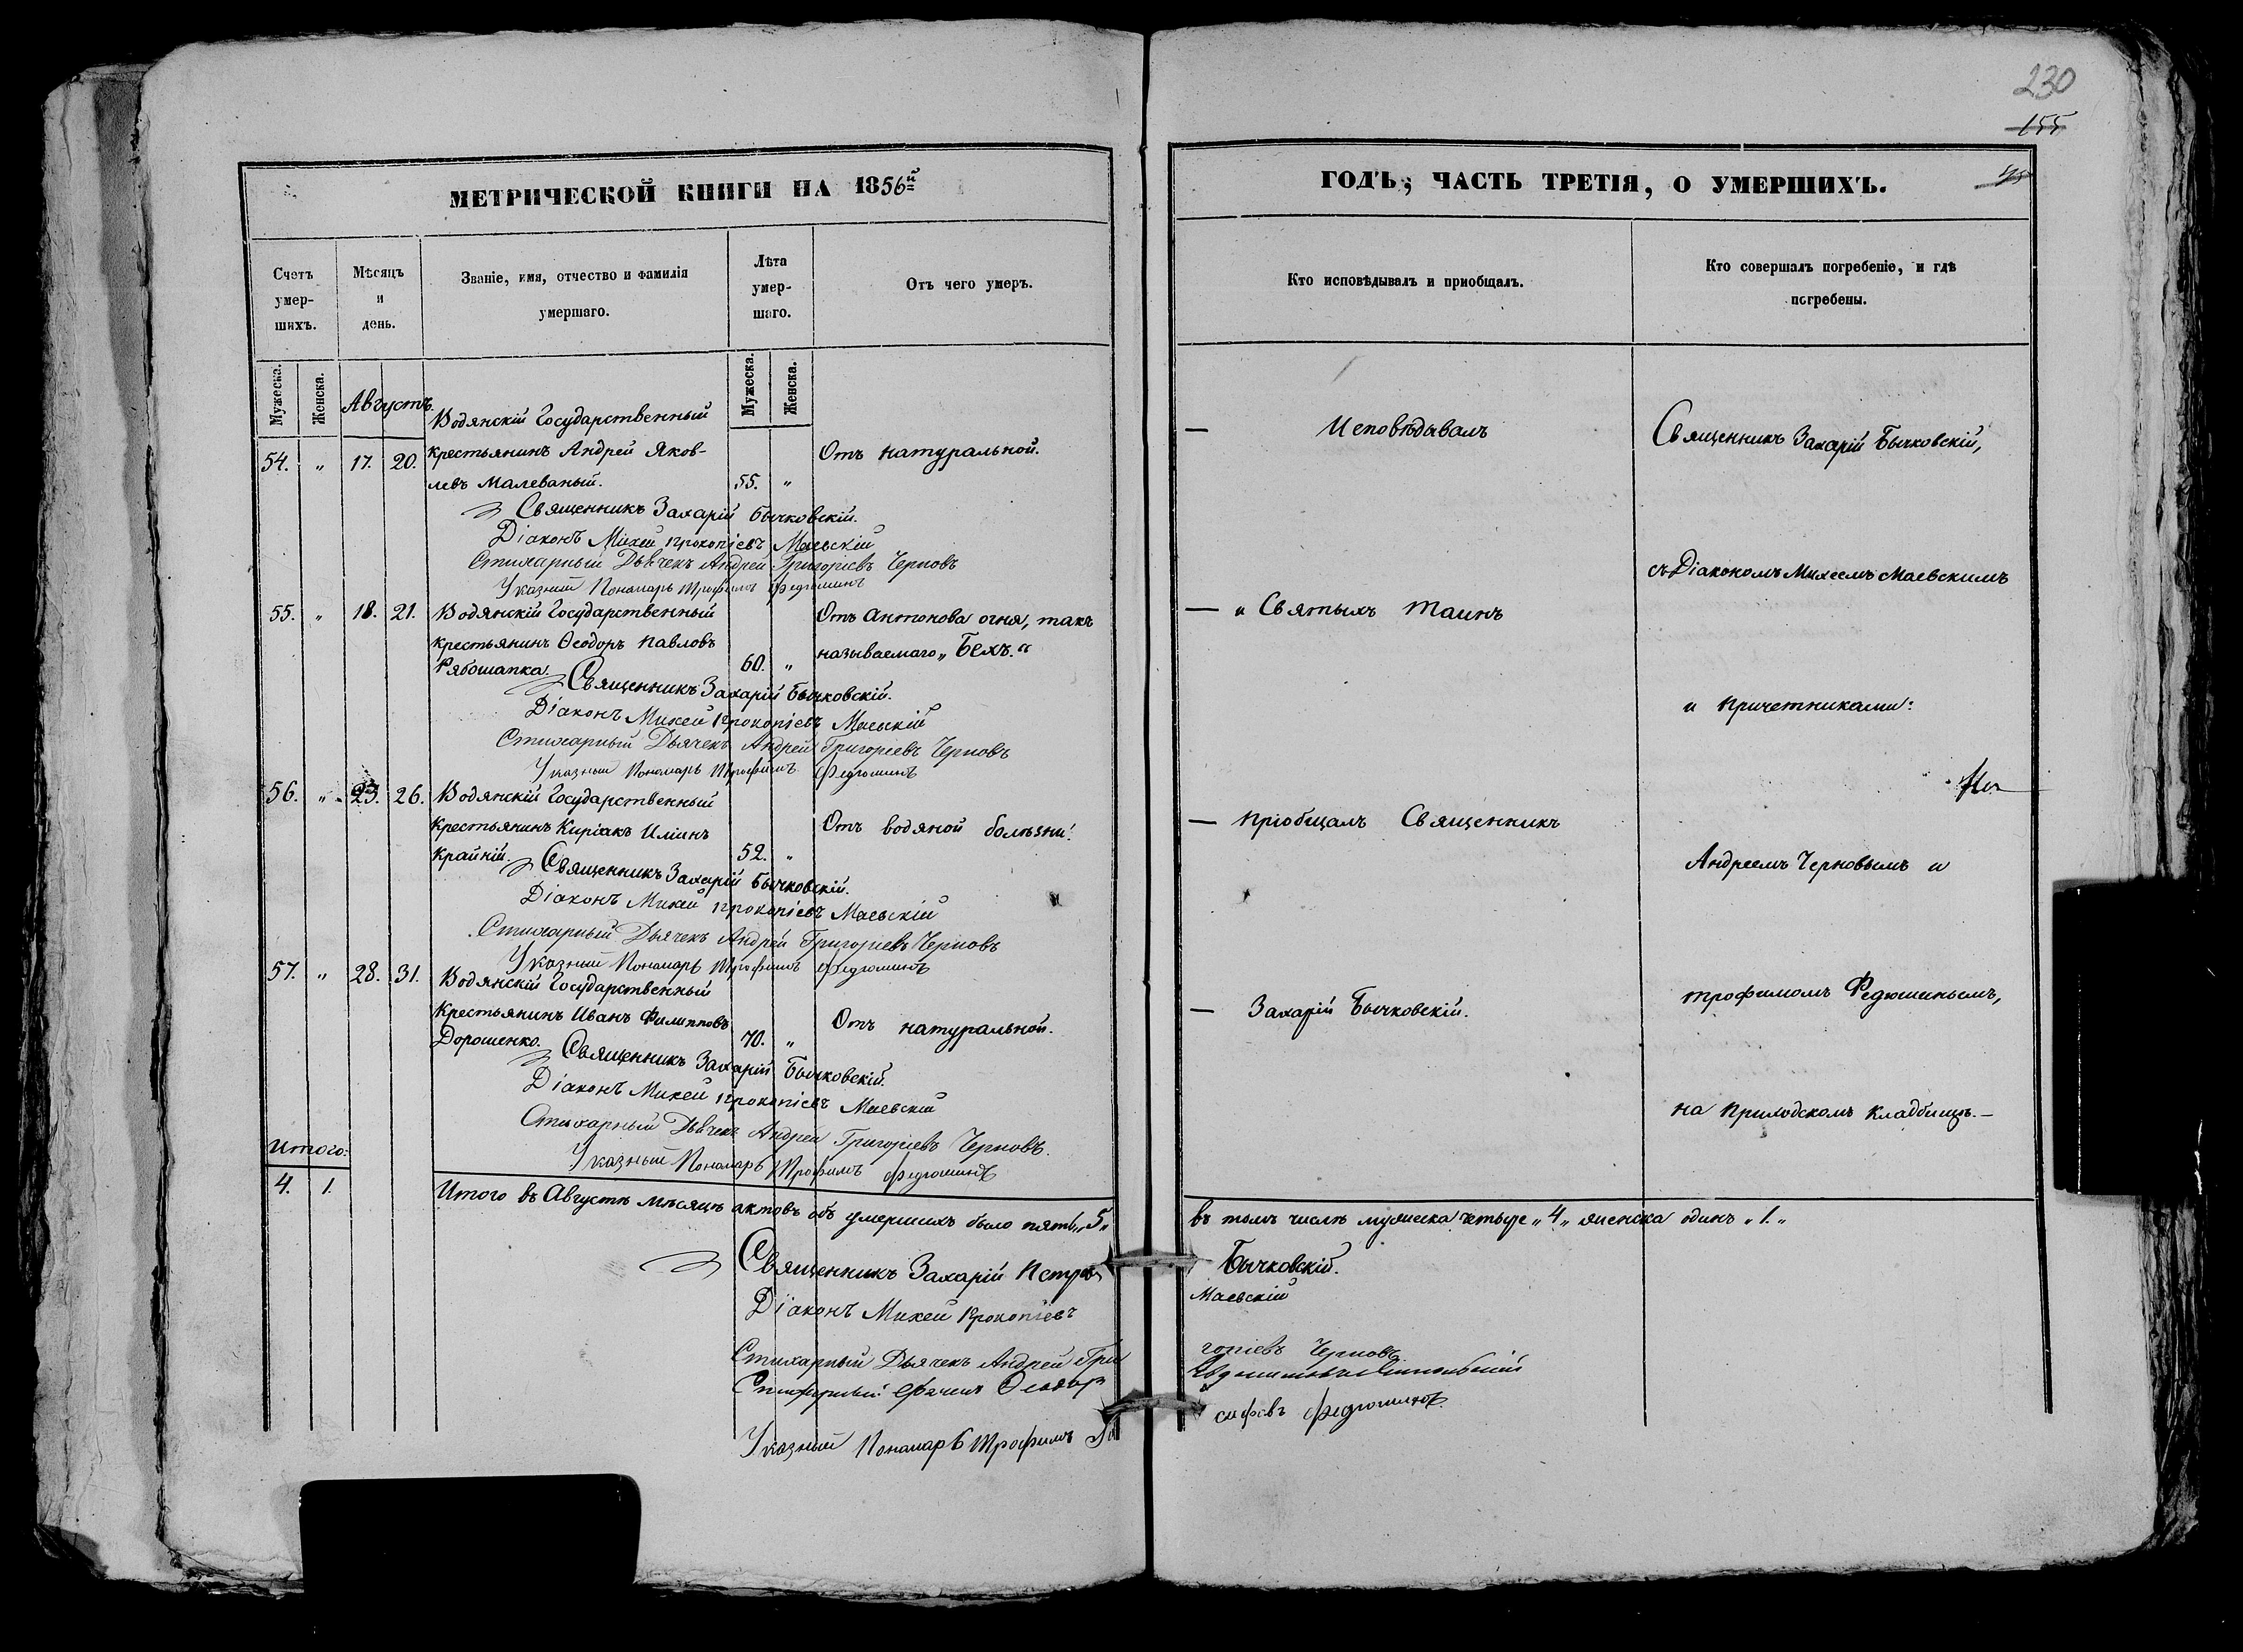 230
155
МЕТРИЧЕСКОЙ КНИГИ НА 1856й
Счетъ
умер-
шихъ.
Мѣсяцъ
и
день.
Званіе, имя, отчество и фамилія
умершаго.
Лѣта
умер-
шаго.
Отъ чего умеръ.
Мужеска.
Женска.
Августъ.
Мужеска.
Женска.
Водянскій Государственный
54. „ 17. 20. крестьянинъ Андрей Яков- Отъ натуральной.
левъ Малеваный. 55. „
Священникъ Захарій Бычковскій.
Діаконъ Михей Прокопіевъ Маевскій
Стихарный Дьячекъ Андрей Григоріевъ Черновъ
Указный Пономарь Трофимъ Федюшинъ
55. „ 18. 21. Водянскій Государственный Отъ антонова огня, такъ
крестьянинъ Ѳеодоръ Павловъ называемаго „Бехъ.“
Рябошапка. 60. „
Священникъ Захарій Бычковскій.
Діаконъ Михей Прокопіевъ Маевскій
Стихарный Дьячекъ Андрей Григоріевъ Черновъ
Указный Пономарь Трофимъ Федюшинъ
56. „ 23. 26. Водянскій Государственный
крестьянинъ Киріакъ Иліинъ Отъ водяной болѣзни.
Крайній. 52. „
Священникъ Захарій Бычковскій.
Діаконъ Михей Прокопіевъ Маевскій
Стихарный Дьячекъ Андрей Григоріевъ Черновъ
Указный Пономарь Трофимъ Федюшинъ
57. „ 28. 31. Водянскій Государственный
Крестьянинъ Иванъ Филипповъ Отъ натуральной.
Дорошенко. 70. „
Священникъ Захарій Бычковскій.
Діаконъ Михей Прокопіевъ Маевскій
Стихарный Дьячекъ Андрей Григоріевъ Черновъ.
Указный Пономарь Трофимъ Федюшинъ
Итого:
4. 1.
Итого въ Августѣ мѣсяцѣ актовъ объ умершихъ было пять „5„
Священникъ Захарій Петровъ
Діаконъ Михей Прокопіевъ
Стихарный Дьячекъ Андрей Гри
Ѳеодоръ
Указный Пономарь Трофимъ
ГОДЪ; ЧАСТЬ ТРЕТІЯ, О УМЕРШИХЪ.
Кто исповѣдывалъ и приобщалъ.
Кто совершалъ погребеніе, и гдѣ
погребены.
— Исповѣдывалъ
Священникъ Захарій Бычковскій,
съ Діакономъ Михеемъ Маевскимъ
— и Святыхъ Таинъ
и причетниками:
— пріобщалъ Священникъ
Андреемъ Черновымъ и
— Захарій Бычковскій.
Трофимомъ Федюшинымъ,
на приходскомъ кладбищѣ.—
въ томъ числѣ мужеска четыре „4„ женска одинъ „1.„
Бычковскій.
Маевскій
горіевъ Черновъ
сифовъ Федюшинъ.